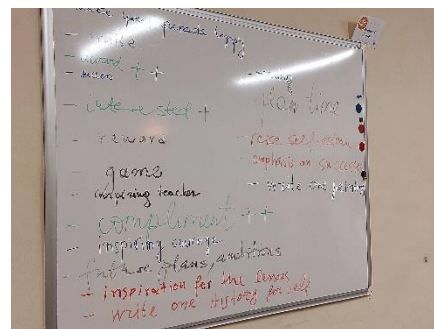 make your parents happy
- praise
- award + +
- interested +
- reward
- game
- inspiring teacher
- compliment + +
- inspiring
- future plans, ambitions
- inspiration for the lesson
- write one history for self
- plan time
- raise self-esteem
emphasis on success
- work on